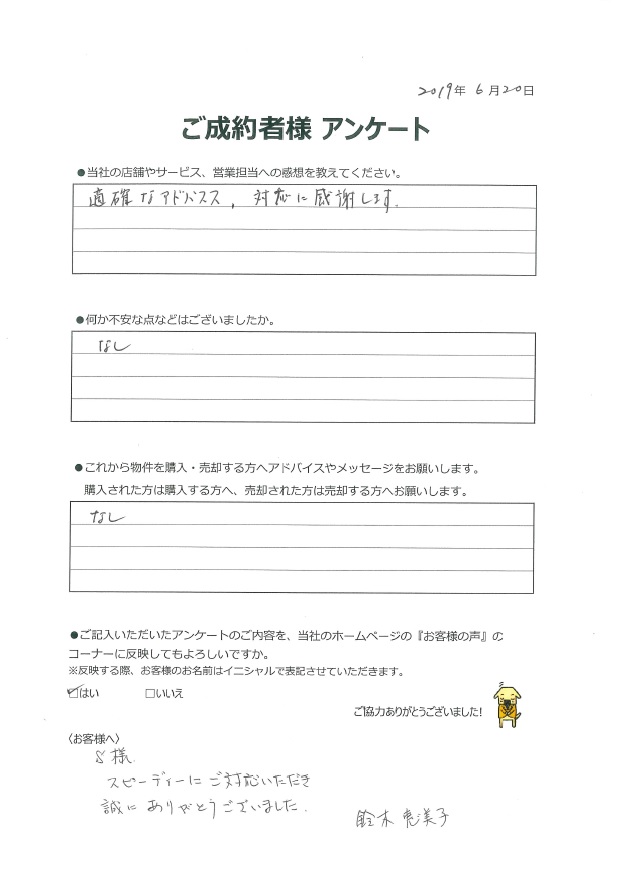 2019年 6月20日
ご成約者様 アンケート
●当社の店舗やサービス、営業担当への感想を教えてください。
適確なアドバスス, 対応に感謝します.
●何か不安な点などはございましたか。
なし
●これから物件を購入・売却する方へアドバイスやメッセージをお願いします。
購入された方は購入する方へ、売却された方は売却する方へお願いします。
なし
●ご記入いただいたアンケートのご内容を、当社のホームページの『お客様の声』の
コーナーに反映してもよろしいですか。
※反映する際、お客様のお名前はイニシャルで表記させていただきます。
☑はい □いいえ
ご協力ありがとうございました!
〈お客様へ〉
S様
スピーディーにご対応いただき
誠にありがとうございました.
鈴木 恵美子